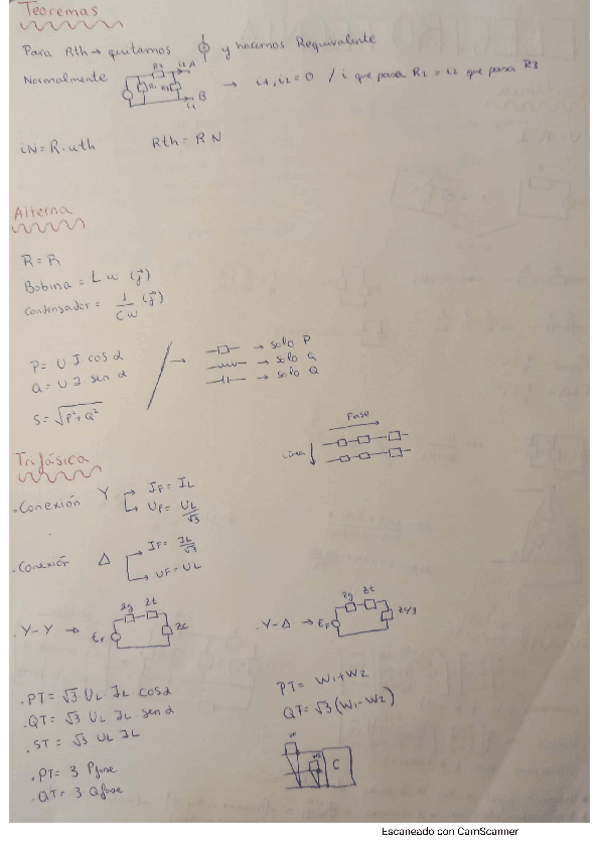 Teoremas
Para Rth → quitamos y hacemos Requivalente
Normalmente → i1, i2 = 0 / i que pasa R2 = i2 que pasa R3
A
B
iN = R·uth Rth = RN
Alterna
R = R
Bobina = L ω (j)
Condensador = 1/Cω (j)
P = U I cos α
Q = U I sen α
S = √P²+Q²
→ solo P
→ solo Q
→ solo Q
Fase
Línea ↓
Trifásica
.Conexión Y → IF = IL
↳ UF = UL/√3
.Conexión Δ → IF = IL/√3
UF = UL
.Y-Y → EF Zg Zt Zc
.Y-Δ → EF Zg Zt Zc/3
.PT = √3 UL IL cos α
.QT = √3 UL IL sen α
.ST = √3 UL IL
.PT = 3 Pfase
.QT = 3 Qfase
PT = W1+W2
QT = √3 (W1-W2)
C
Escaneado con CamScanner